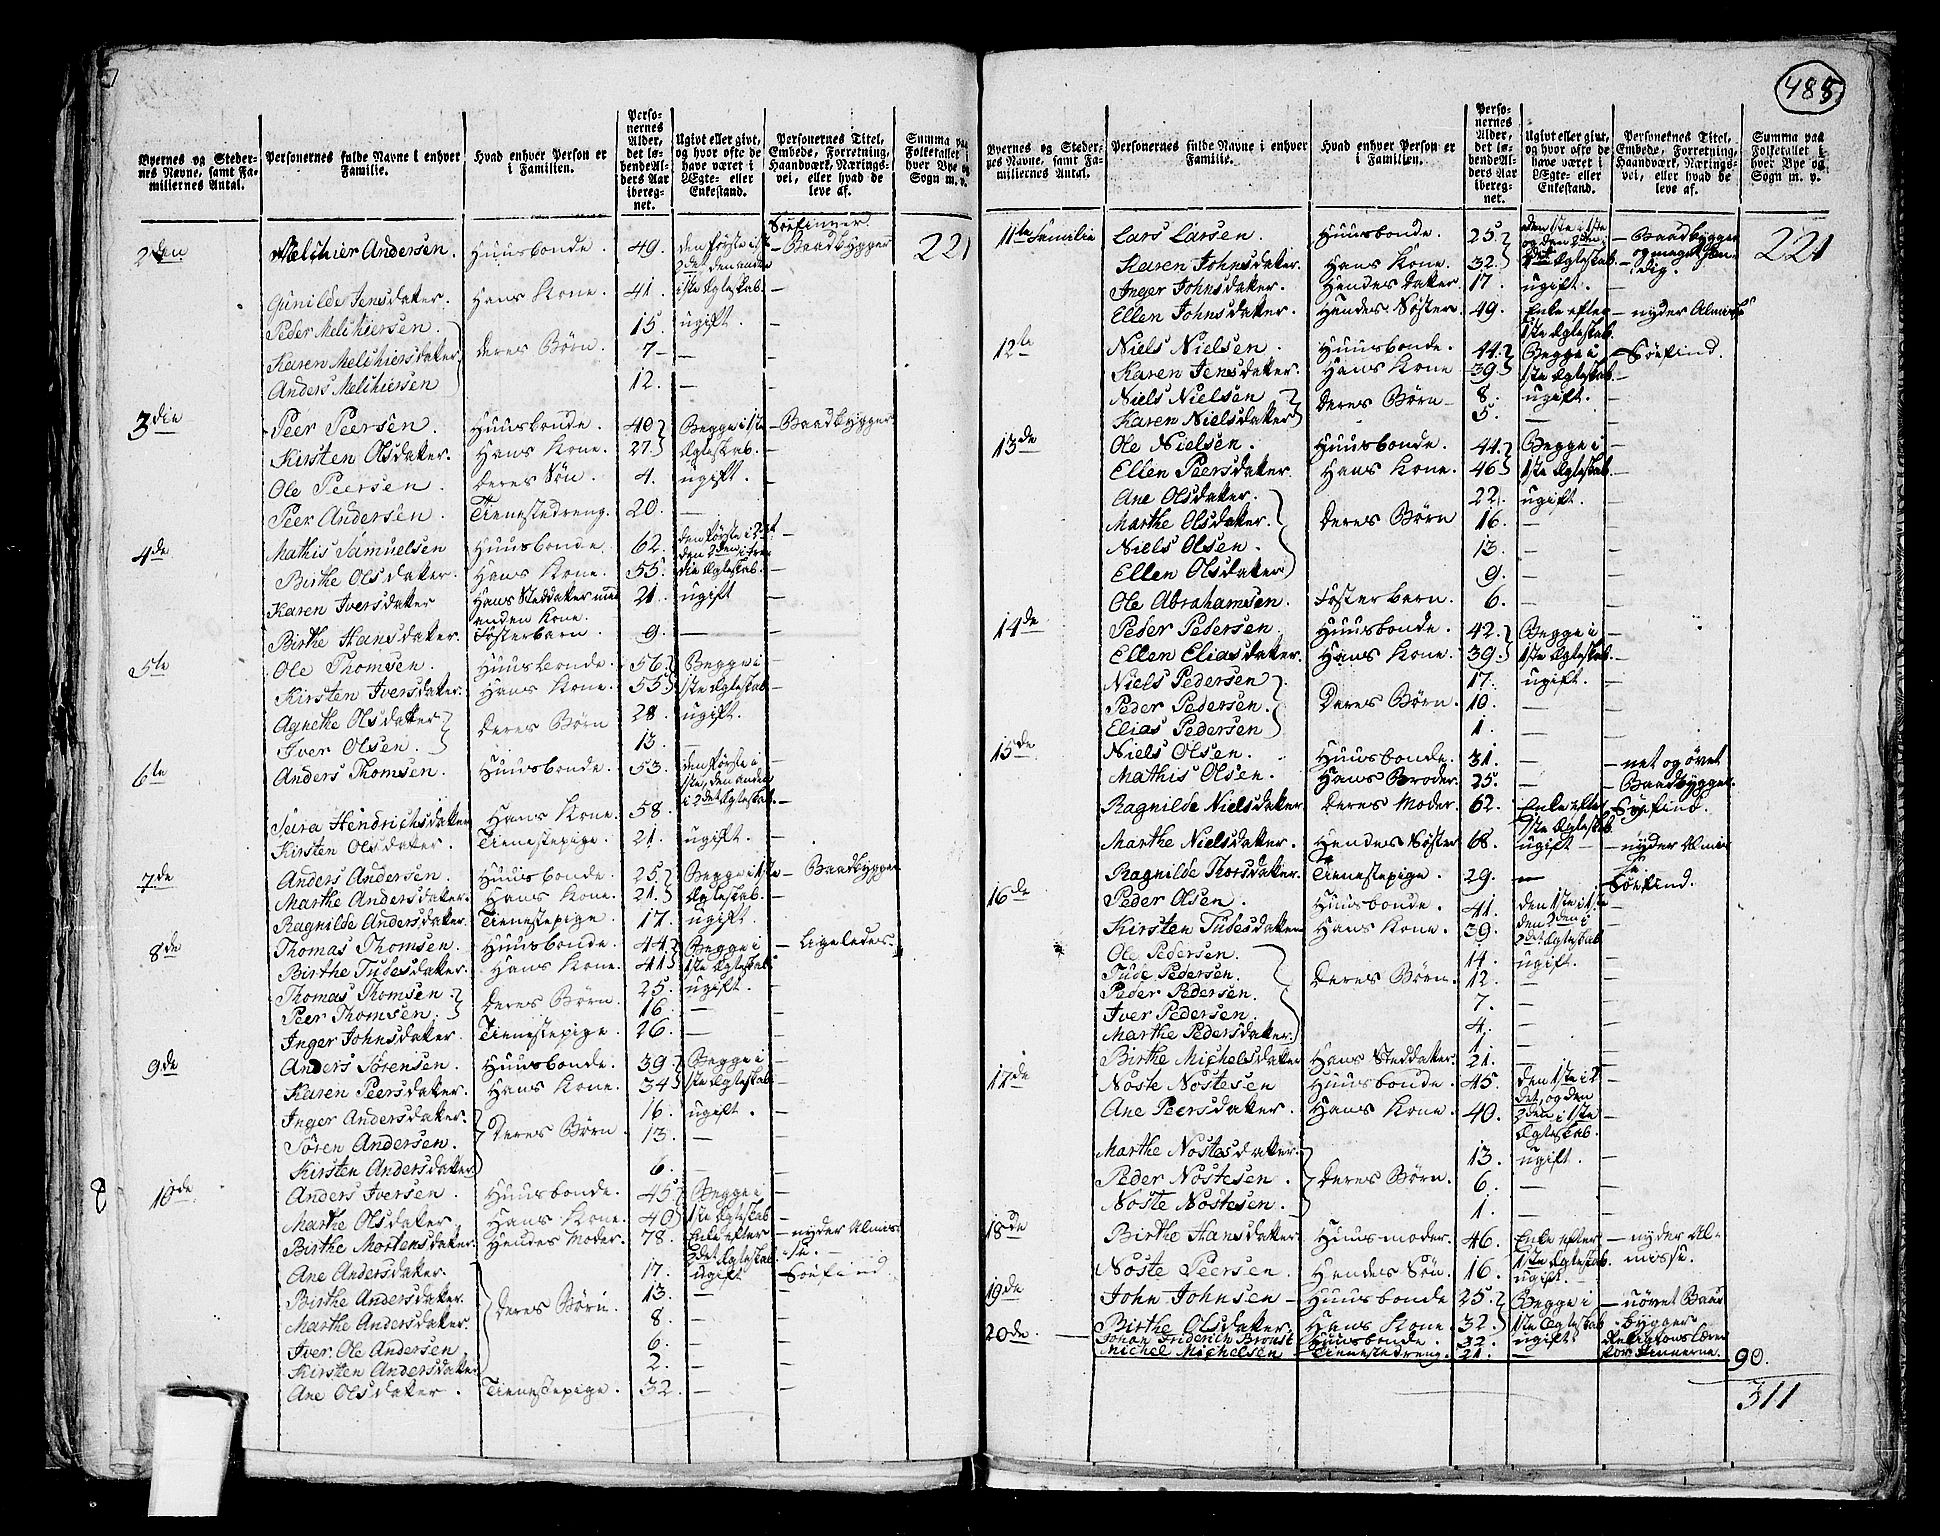 488
Byernes og Steder-
nes Navne, samt Fa-
miliernes Antal.
Personernes fulde Navne i enhver
Familie.
Hvad enhver Person er
i Familien.
Perso-
nernes
Alder,
det lø-
bende Al-
ders Aar
ibereg-
net.
Ugivt eller givt,
og hvor ofte de
have været i
Ægte- eller
Enkestand.
Personernes Titel,
Embede, Forretning,
Haandværk, Nærings-
vei, eller hvad de
leve af.
Summa paa
Folketallet i
hver Bye og
Sogn m. v.
Søefinner
2den Melchier Andersen Huusbonde. 49. den første i 1ste – Baadbygger 221
2det den anden
Gunilde Jensdatter. Hans Kone. 41. i 1ste Ægteskab. –
Peder Melchiersen. 15. ugift. –
Karen Melchiersdatter deres Børn. 7 – –
Anders Melchiersen 12. – –
3die Peer Peersen. Huusbonde. 40 Begge i 1ste – Baadbygger
Kirsten Olsdatter. Hans Kone. 27. Ægteskab. –
Ole Peersen. deres Søn. 4. ugift. –
Peer Andersen. Tienestedreng. 20. –
4de Mathis Samuelsen Huusbonde. 62. den første i 2det –
den 2den i tre
Birthe Olsdatter. Hans Kone. 55. die Ægteskab. –
Karen Iversdatter Hans Steddatter med 21. ugift –
anden Kone.
Birthe Hansdatter. Fosterbarn. 9. – –
5te Ole Thomsen. Huusbonde. 56. Begge i –
Kirsten Iversdatter. Hans Kone. 55. 1ste Ægteskab –
Agnethe Olsdatter 28. ugift. –
deres Børn
Iver Olsen. 13. –
6te Anders Thomsen. Huusbonde. 53. den første i –
1ste, den anden
i 2det Ægteskab. –
Seira Hendrichsdatter Hans Kone. 58.
Kirsten Olsdatter. Tienestepige. 21. ugift. –
7de Anders Andersen. Huusbonde. 25. Begge i 1ste – Baadbygger
Marthe Andersdatter. Hans Kone. 21. Ægteskab. –
Ragnilde Andersdatter. Tienestepige. 17. ugift. –
8de Thomas Thomsen. Huusbonde. 44. Begge i – Ligeledes.
Birthe Tudesdatter. Hans Kone. 41 1ste Ægteskab. –
Thomas Thomsen 25. ugift. –
deres Børn.
Peer Thomsen. 16. –
Inger Johnsdatter Tienestepige. 26. – –
9de Anders Sørensen. Huusbonde. 39. Begge i –
Karen Peersdatter. Hans Kone. 34 1ste Ægteskab –
Inger Andersdatter. 16. ugift. –
Søren Andersen. Deres Børn. 13. – –
Kirsten Andersdatter 6. – –
10de Anders Iversen. Huusbonde. 45. Begge i –
Marthe Olsdatter. Hans Kone. 40 1ste Ægteskab –
Birthe Mortensdatter Hendes Moder. 78. Enke efter – nyder Almis
2det Ægteskab. se. –
Ane Andersdatter. 17. ugift Søefind.
Birthe Andersdatter. 13. – –
deres Børn.
Marthe Andersdatter. 8. – –
Iver Ole Andersen 6. –
Kirsten Andersdatter 2. – –
Ane Olsdatter. Tienestepige. 32. – –
Byernes og Steder-
nes Navne, samt Fa-
miliernes Antal.
Personernes fulde Navne i enhver
Familie.
Hvad enhver Person er
i Familien.
Perso-
nernes
Alder,
det lø-
bende Al-
ders Aar
ibereg-
net.
Ugivt eller givt,
og hvor ofte de
have været i
Ægte- eller
Enkestand.
Personernes Titel,
Embede, Forretning,
Haandværk, Nærings-
vei, eller hvad de
leve af.
Summa paa
Folketallet i
hver Bye og
Sogn m. v.
11te Familie Lars Larsen. Huusbonde. 25. den 1ste i 1ste – Baadbygger 221
og den 2den i
Karen Johnsdatter. Hans Kone. 32. 2det Ægteskab. –
Inger Johnsdatter. Hendes datter 17. ugift. –
Ellen Johnsdatter. Hendes Søster. 49. Enke efter – nyder Almisse
1ste Ægteskab.
12te Niels Nielsen. Huusbonde. 44. Begge i – Søefind.
Karen Jensdatter. Hans Kone 39. 1ste Ægteskab. –
Niels Nielsen 8. ugift. –
deres Børn –
Karen Nielsdatter 5. – –
13de Ole Nielsen. Huusbonde. 44. Begge i –
Ellen Peersdatter. Hans Kone. 46 1ste Ægteskab. –
Ane Olsdatter. 22. ugift. –
Marthe Olsdatter. deres Børn 16. – –
Niels Olsen. 13. – –
Ellen Olsdatter 9. – –
Ole Abrahamsen. Fosterbarn. 6. – –
14de Peder Pedersen. Huusbonde. 42. Begge i –
Ellen Eliasdatter. Hans Kone. 39. 1ste Ægteskab. –
Niels Pedersen 17. ugift. –
Peder Pedersen. Deres Børn. 10. – –
Elias Pedersen 1. – –
15de Niels Olsen. Huusbonde. 31. –
Mathis Olsen. Hans Broder. 25. – – Baadbygger.
Ragnilde Nielsdatter deres Moder. 62. Enke efter Søefind.
1ste Ægteskab
Marthe Nielsdatter. Hendes Søster 68. ugift – – nyder Almis
se
Ragnilde Thorsdatter. Tienestepige. 29. – Søefind.
16de Peder Olsen. Huusbonde. 41. den 1ste i 1ste –
den 2den i
Kirsten Tudesdatter Hans Kone. 39. 2det Ægteskab –
Ole Pedersen. 14. ugift. –
Tude Pedersen. Deres Børn. 12. – –
Peder Pedersen. 7. – –
Iver Pedersen. 4. – –
Marthe Pedersdatter. 1. – –
Birthe Michelsdatter Hans Steddatter. 21. – –
17de Noste Nostesen Huusbonde. 45. den 1ste i 2 –
det, og den
Ane Peersdatter. Hans Kone. 40. 2den i 1ste –
Ægteskab.
Marthe Nostesdatter. 13. ugift. –
Peder Nostesen. Deres Børn. 6. – –
Noste Nostesen. 1. – –
18de Birthe Hansdatter. Huusmoder. 46. Enke efter – nyder Al-
1ste Ægteskab. misse.
Noste Peersen. Hendes Søn. 16. ugift. –
19de John Johnsen – Huusbonde 25. Begge i – uøvet Baad
Birthe Olsdatter. Hans Kone. 32. 1ste Ægteskab bygger.
20de. Johan Friderich Bronst Huusbonde. 32. ugift Religionslærer
Michel Michelsen Tienestedreng. 21. – for Finnerne. 90.
311